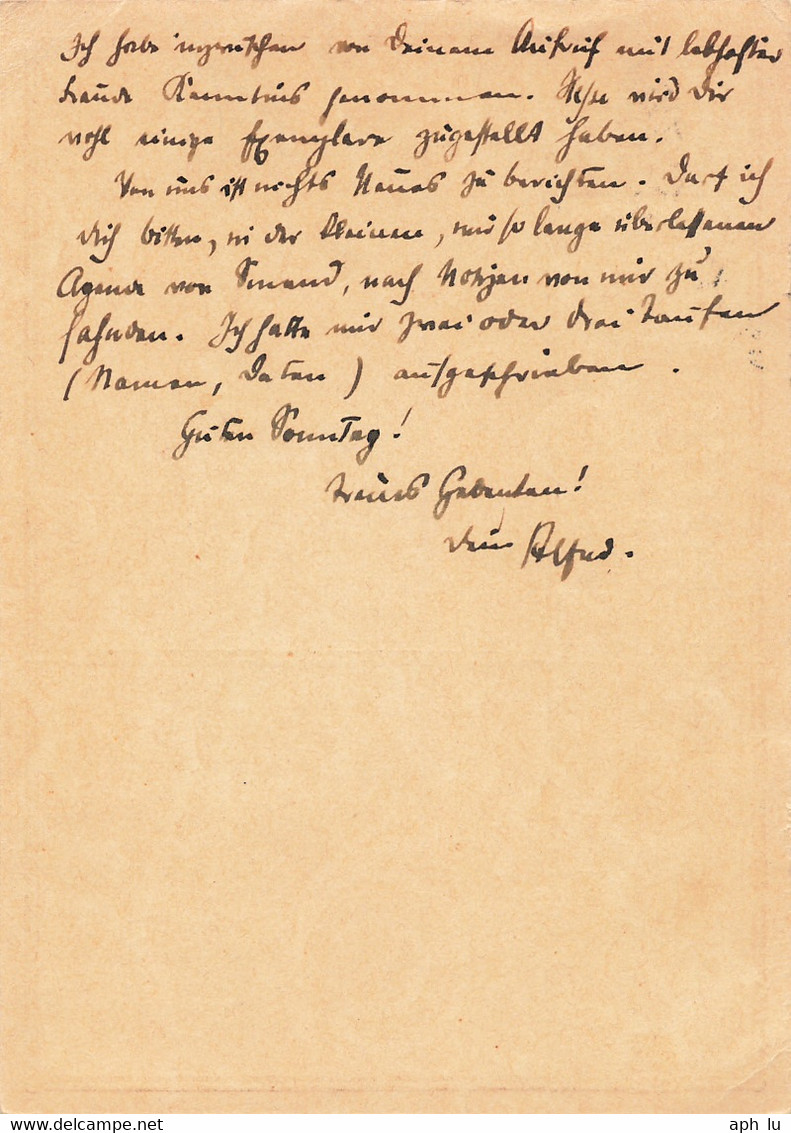 Ich habe inzwischen von Deinem Aufruf mit lebhafter
Freude Kenntnis genommen. wird Dir
wohl einige Exemplare zugestellt haben.
Von uns ist nichts Neues zu berichten. Darf ich
Dich bitten, in der kleinen, mir so lange überlassenen
Agende von Smend, nach Notizen von mir zu
fahnden. Ich hatte mir zwei oder drei Taufen
(Namen, Daten) aufgeschrieben.
Guten Sonntag!
Treues Gedenken!
Dein Alfred.
aph lu